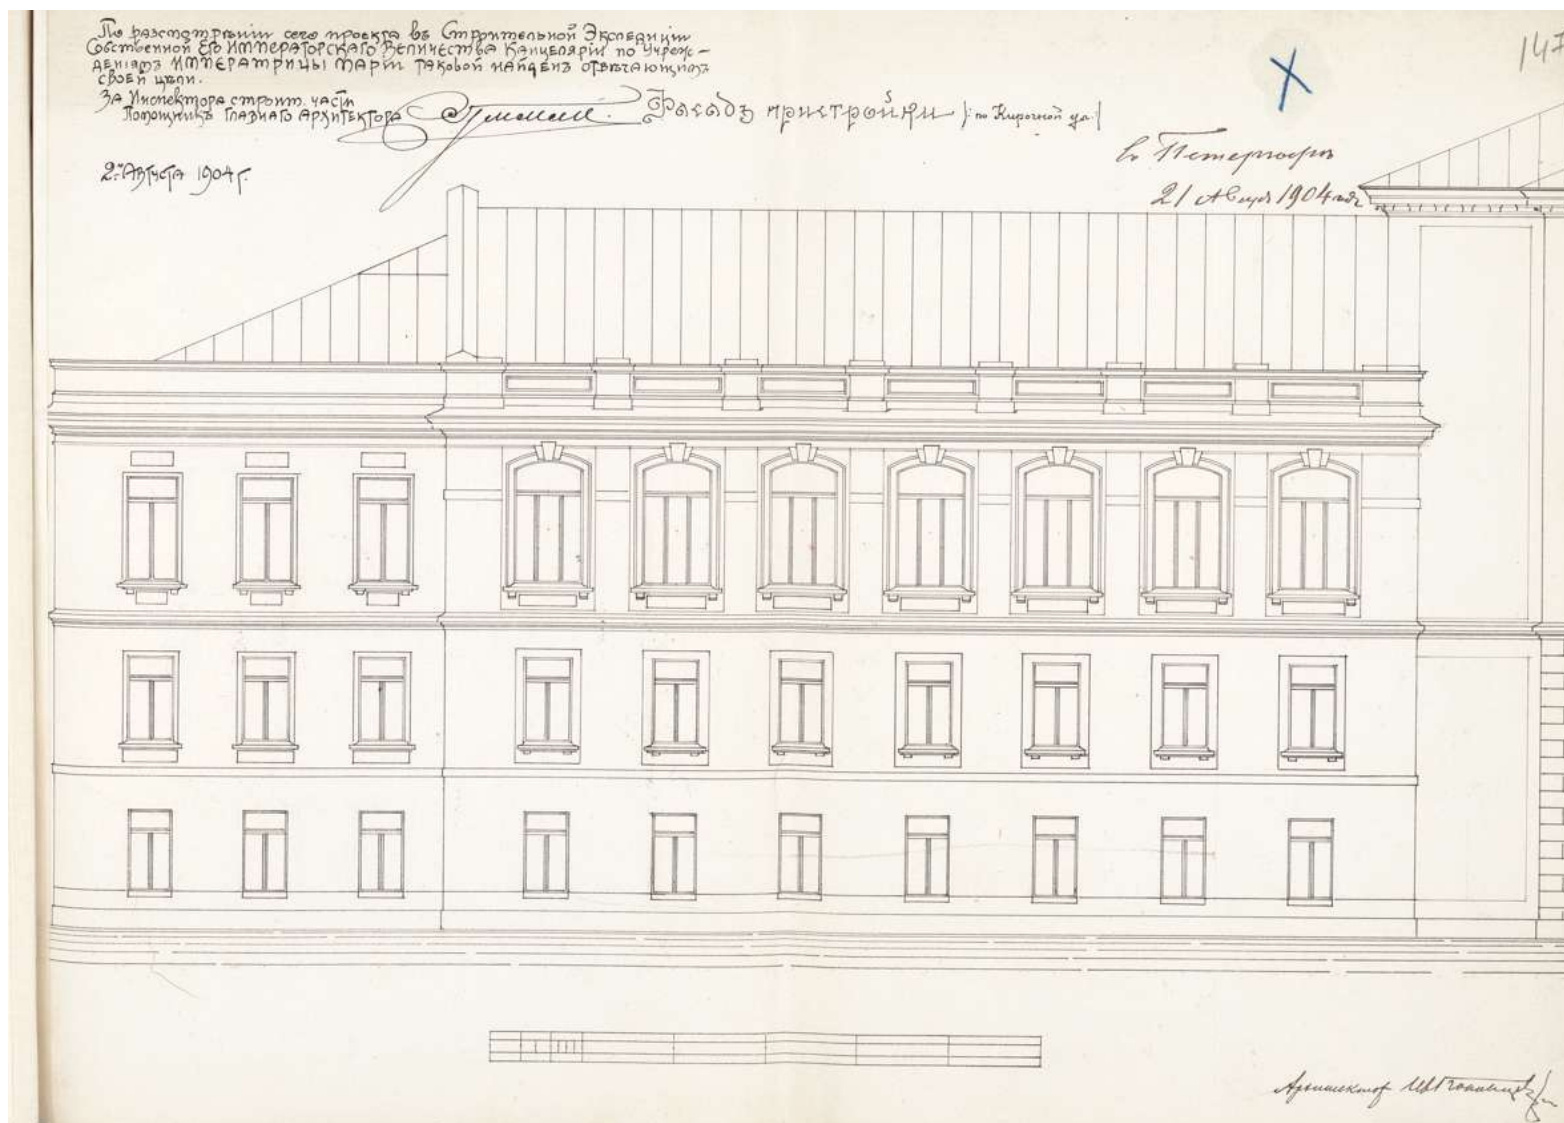 По разсмотрѣнiи сего проекта въ Строительной Экспедицiи
Собственной ЕГО ИМПЕРАТОРСКАГО ВЕЛИЧЕСТВА Канцелярiи по Учреж-
денiямъ ИМПЕРАТРИЦЫ МАРIИ таковой найденъ отвѣчающимъ
своей цѣли.
За Инспектора строит. части
Помощникъ Главнаго Архитектора
2го Августа 1904 г.
Фасадъ пристройки (: по Кирочной ул. :)
147
въ Петергофѣ
21 Августа 1904 года
Архитектор